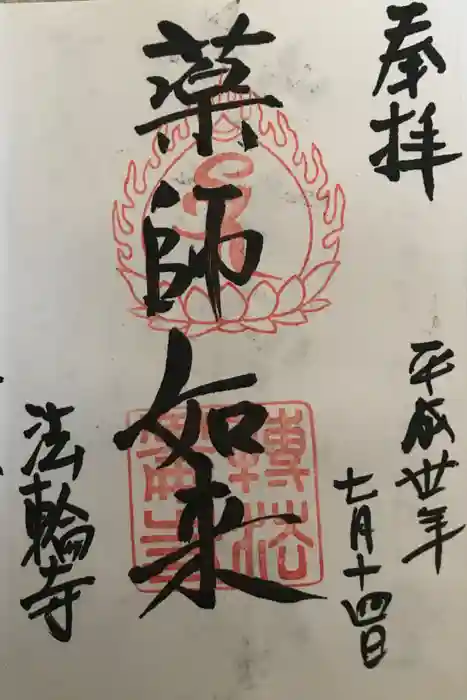 奉拝
平成卅年
七月十四日
薬師如来
法輪寺